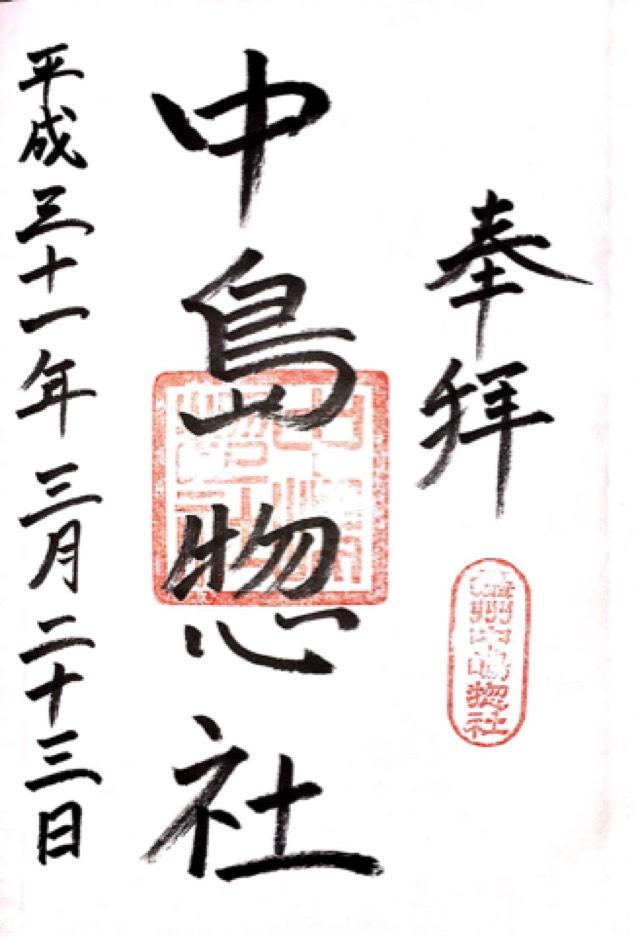 奉拝
摂州中嶋惣社
中島惣社
平成三十一年三月二十三日